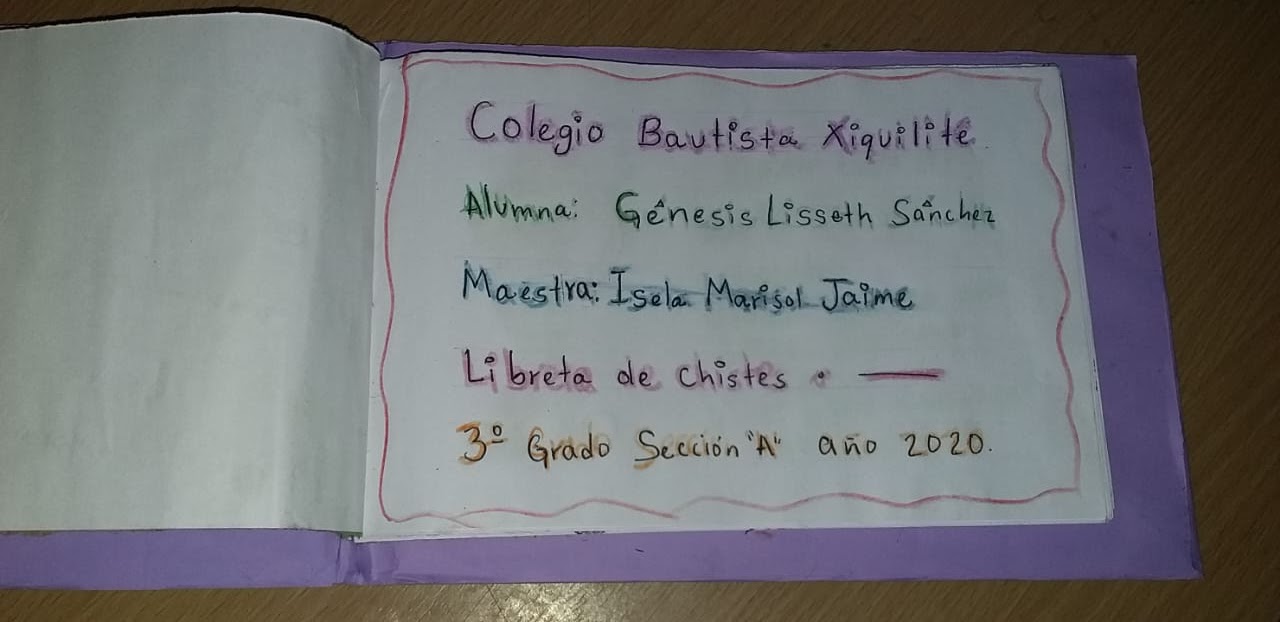 Colegio Bautista Xiquilite.
Alumna: Génesis Lisseth Sánchez
Maestra: Isela Marisol Jaime
Libreta de chistes . —
3º Grado Sección "A" año 2020.